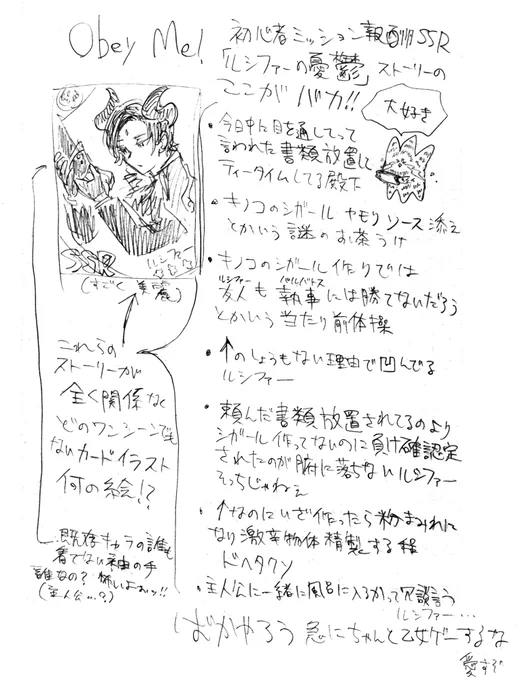 Obey Me!
初心者ミッション報酬SSR
「ルシファーの憂鬱」ストーリーの
ここがバカ!!
大好き
・今日中に目を通してって
言われた書類放置して
ティータイムしてる殿下
・キノコのシガール ヤモリソース添え
とかいう謎のお茶うけ
・キノコのシガール作りでは
ルシファー バルバトス
友人も執事には勝てないだろう
とかいう当たり前体操
・↑のしょうもない理由で凹んでる
ルシファー
・頼んだ書類放置されてるのより
シガール作ってないのに負け確認定
されたのが腑に落ちないルシファー
そっちじゃねぇ
・↑なのにいざ作ったら粉まみれに
なり激辛物体精製する程
ドヘタクソ
・主人公に一緒に風呂に入るかって冗談言う
ルシファー…
ばかやろう 急にちゃんと乙女ゲーするな
愛すぞ
SSR
ルシファー
(すごく美麗)
これらの
ストーリーが
全く関係なく
どのワンシーンでも
ないカードイラスト
何の絵!?
既存キャラの誰も
着てない袖の手
誰なの?怖いよぉッ!!
(主人公…?)